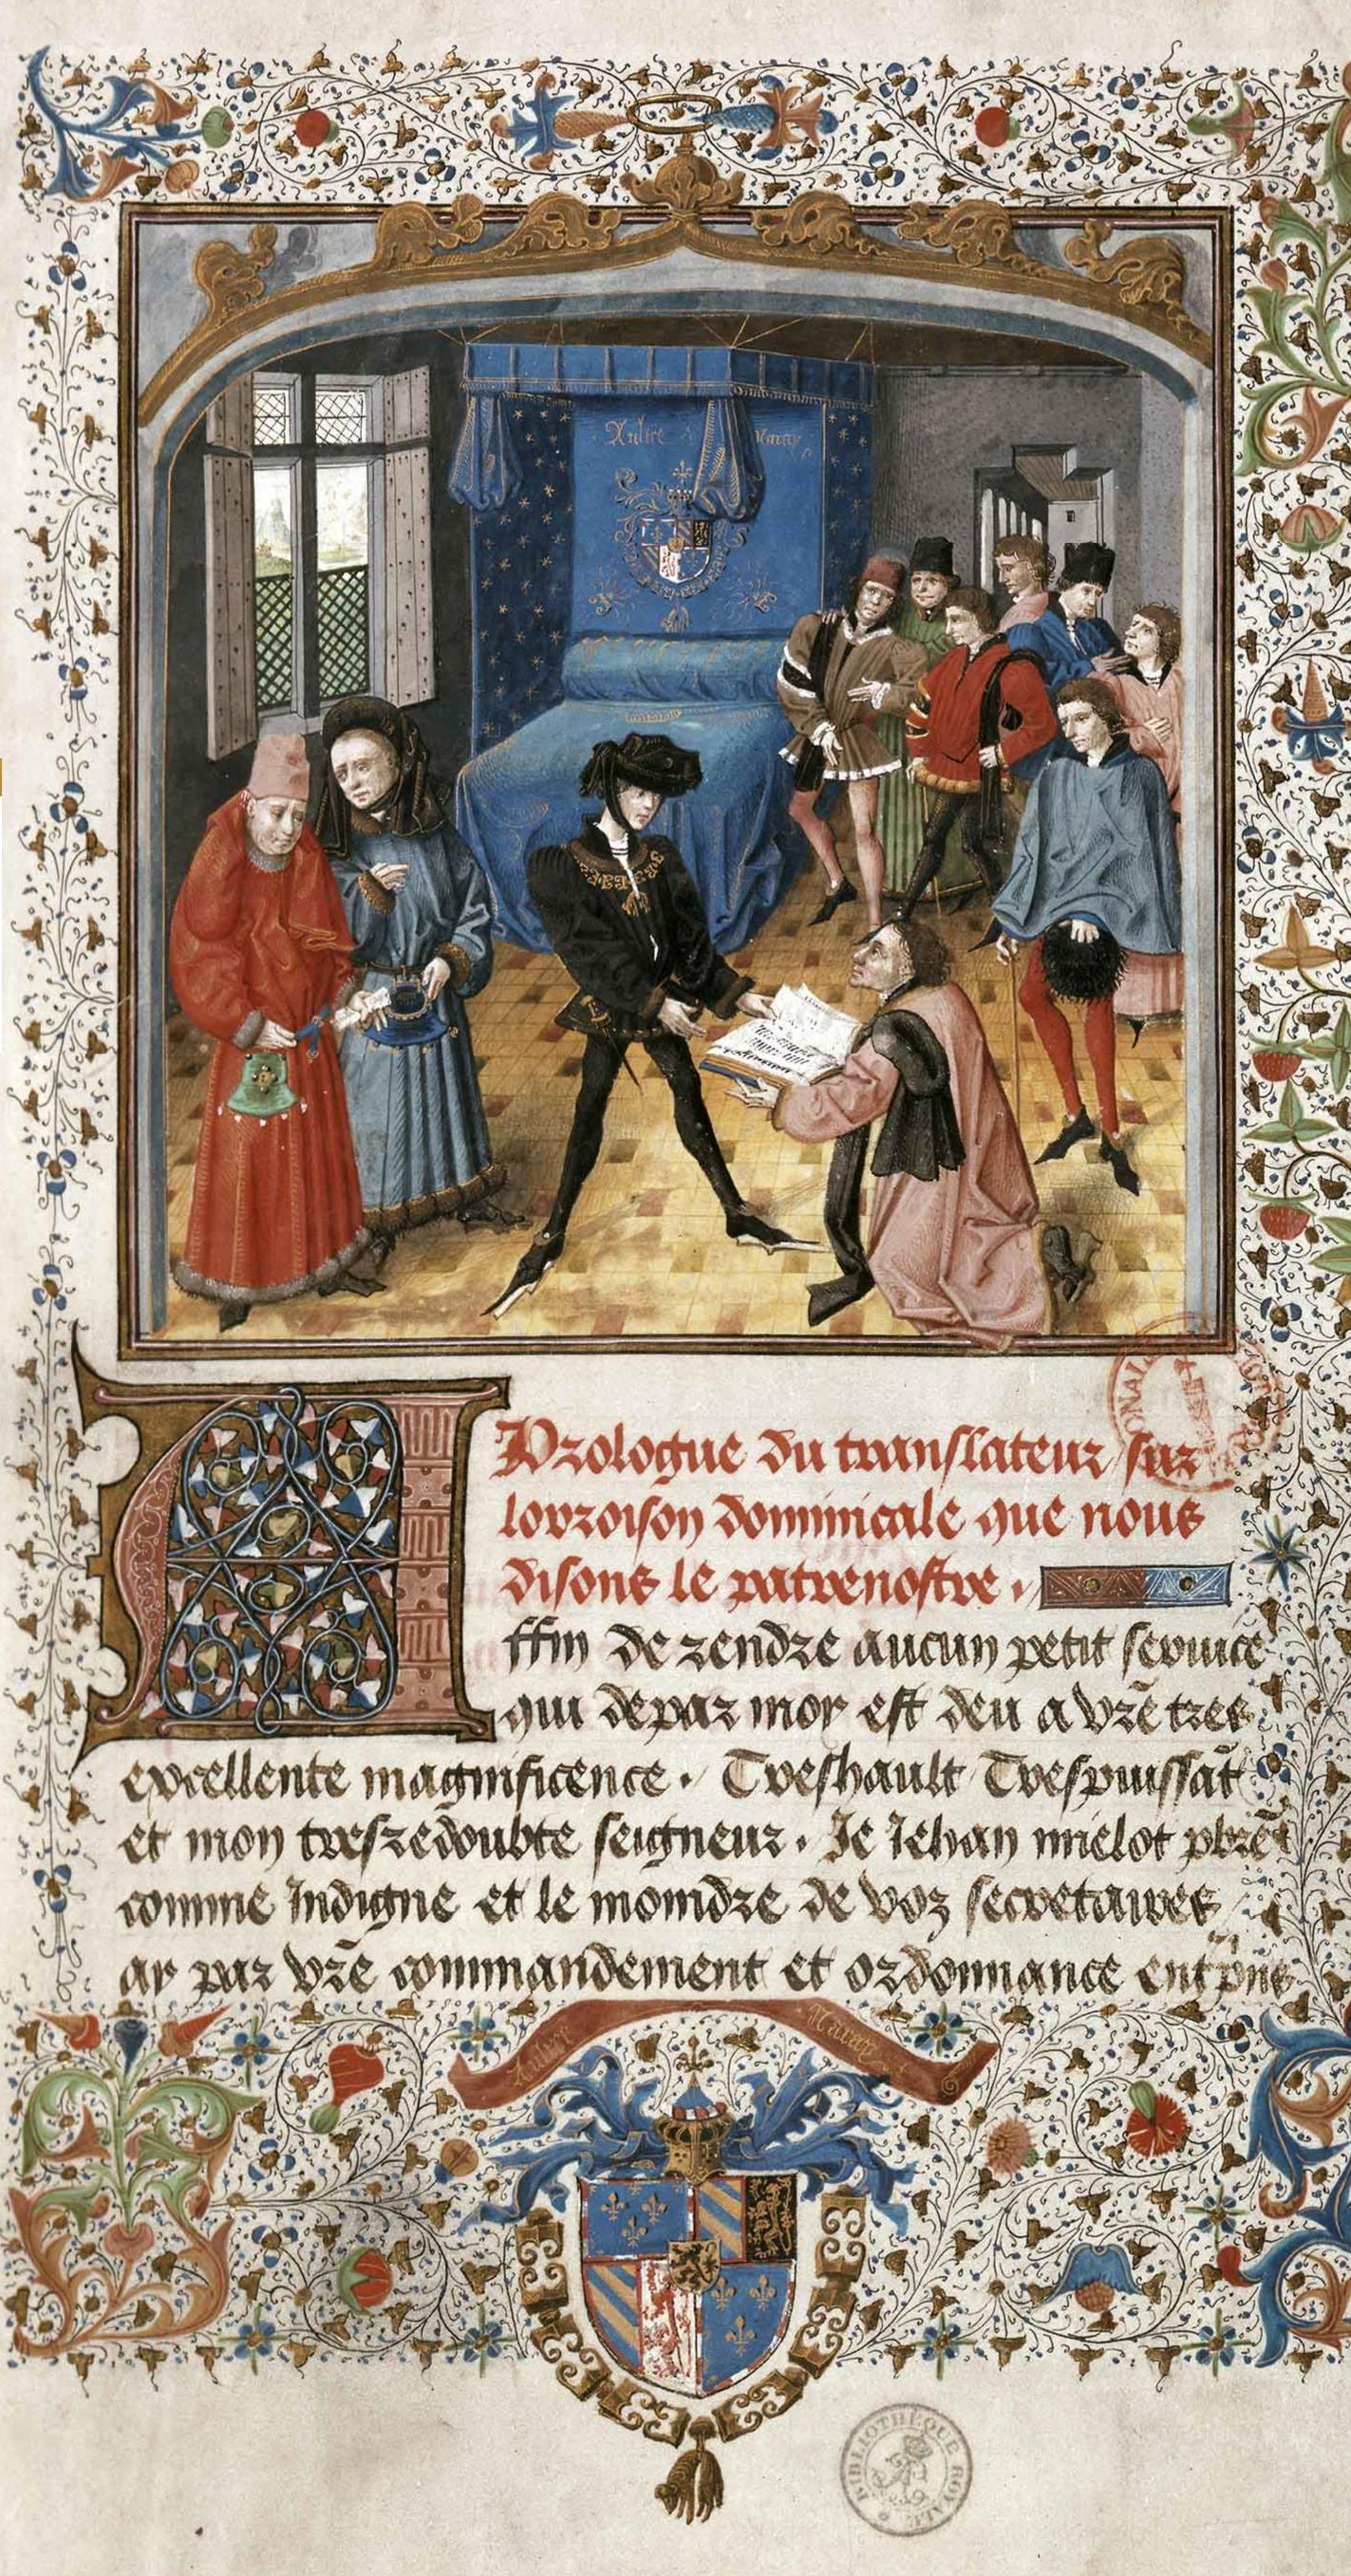 Aultre Naray
Prologue du translateur sur
lorroison dominicale que nous
disons le patrenostre.
Affin de rendre aucun petit seruice
qui depar moy est deu a vr̄e tres
excellente magnificence. Treshault Trespuissāt
et mon tresredoubte seigneur. Je Jehan mielot pbr̄e
comme Indigne et le moindre de voz secretaires
ay par vr̄e commandement et ordonnance
Aultre Naray
BIBLIOTHÈQUE ROYALE